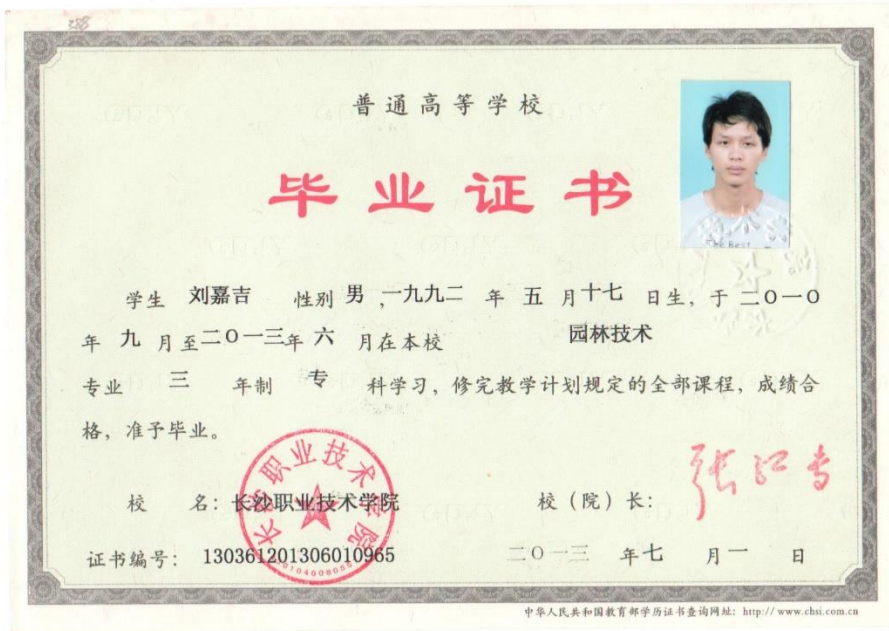 388
普通高等学校
毕业证书
The Best
学生 刘嘉吉 性别 男 ,一九九二 年 五 月 十七 日生，于 二〇一〇
年 九 月至 二〇一三 年 六 月在本校 园林技术
专业 三 年制 专 科学习，修完教学计划规定的全部课程，成绩合
格，准予毕业。
长沙职业技术学院
校 名：长沙职业技术学院 校（院）长：
证书编号： 130361201306010965 二〇一三 年七 月一 日
中华人民共和国教育部学历证书查询网址：http://www.chsi.com.cn